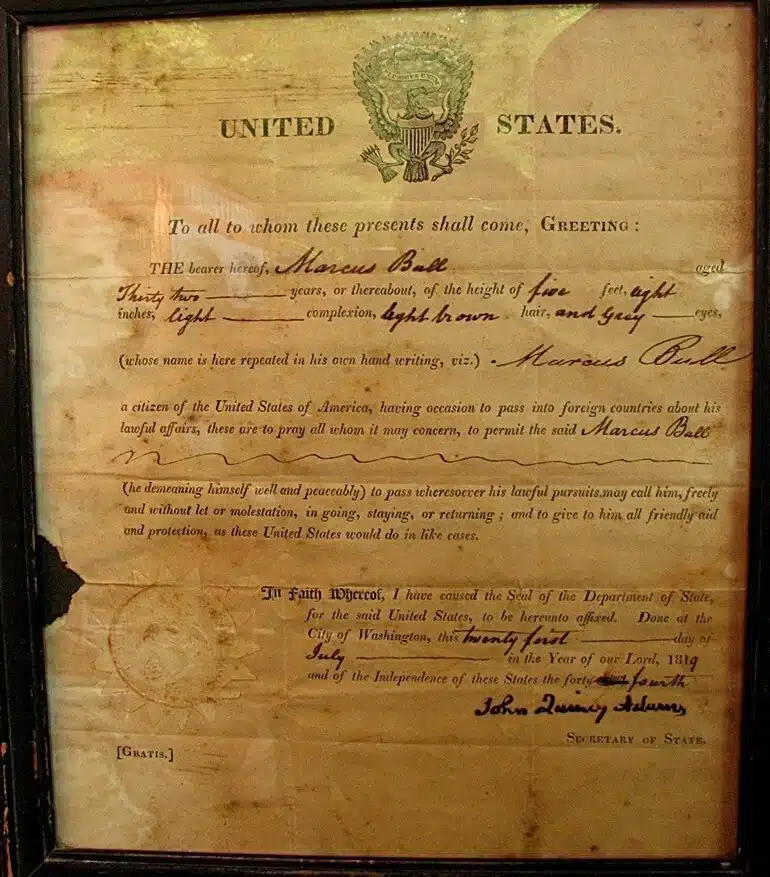 E PLURIBUS UNUM
UNITED STATES.
To all to whom these presents shall come, GREETING:
THE bearer hereof, Marcus Bull aged
Thirty two years, or thereabout, of the height of five feet, eight
inches, light complexion, light brown hair, and Grey eyes,
(whose name is here repeated in his own hand writing, viz.) Marcus Bull
a citizen of the United States of America, having occasion to pass into foreign countries about his
lawful affairs, these are to pray all whom it may concern, to permit the said Marcus Bull
(he demeaning himself well and peaceably) to pass wheresoever his lawful pursuits may call him, freely
and without let or molestation, in going, staying, or returning; and to give to him all friendly aid
and protection, as these United States would do in like cases.
In Faith Whereof, I have caused the Seal of the Department of State,
for the said United States, to be hereunto affixed. Done at the
City of Washington, this twenty first day of
July in the Year of our Lord, 1819
and of the Independence of these States the forty fourth
John Quincy Adams,
SECRETARY OF STATE.
[GRATIS.]